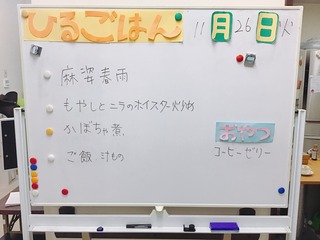 ひるごはん
11月26日(火)
麻婆春雨
もやしとニラのホイスター炒め
かぼちゃ煮
ご飯 汁もの
おやつ
コーヒーゼリー